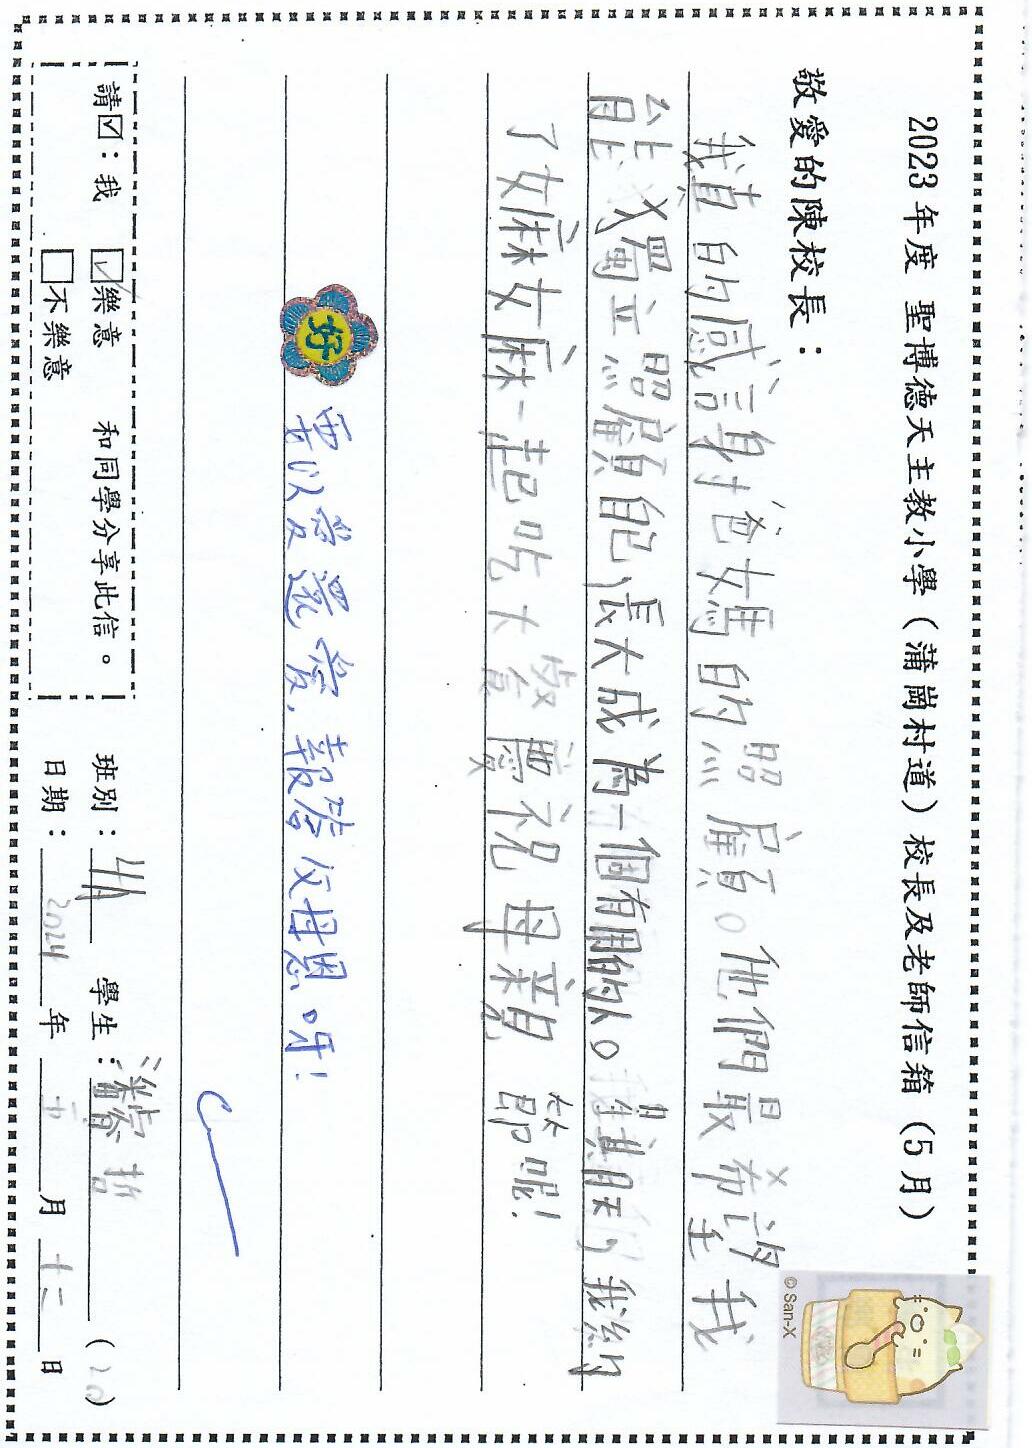 2023年度 聖博德天主教小學(蒲崗村道)校長及老師信箱(5月)
敬愛的陳校長:
我真的感謝爸媽的照顧。他們最希望我
能夠獨立照顧自己,長大成為一個有用的人。星期天我約
了嫲嫲一起吃大餐慶祝母親節呢!
好
要以愛還愛,報答父母恩呀!
請☑:我 ☑樂意 和同學分享此信。
□不樂意
班別:4A 學生:潘睿哲 (20)
日期:2024年五月十二日
© San-X